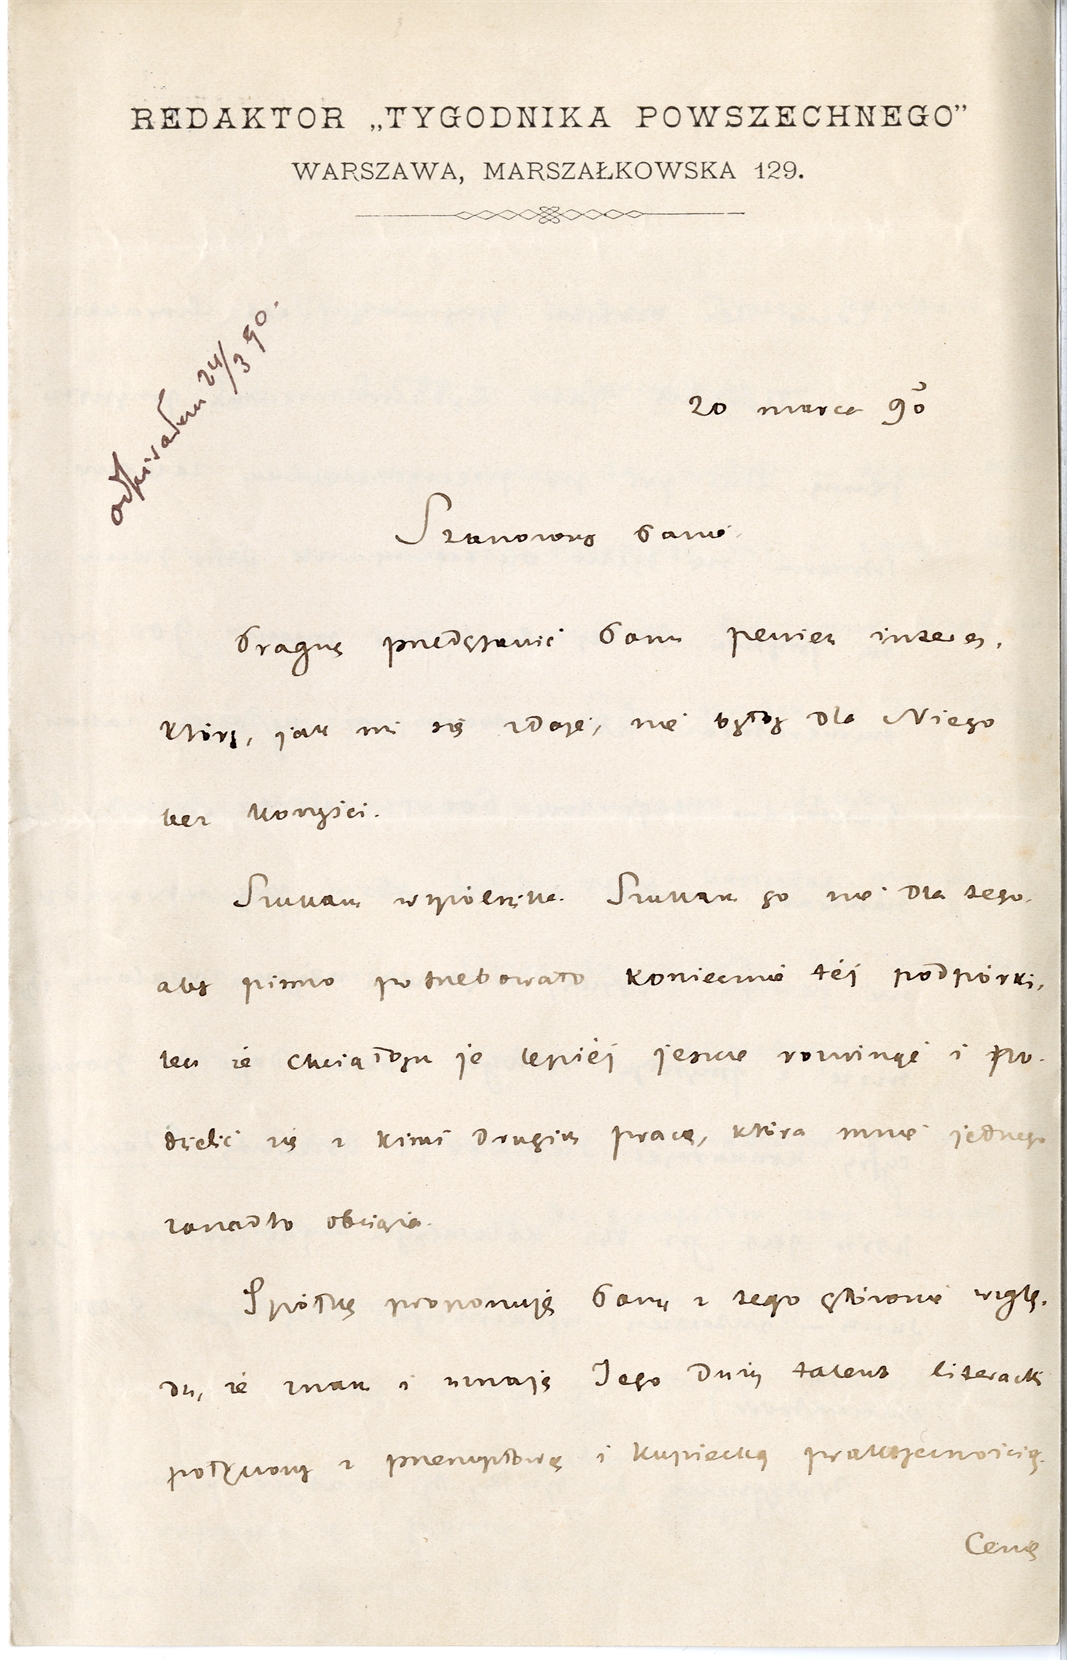 REDAKTOR „TYGODNIKA POWSZECHNEGO”
WARSZAWA, MARSZAŁKOWSKA 129.
odpisałem 24/3 90.
20 marca 90
Szanowny Panie
Pragnę przedstawić Panu pewien interes,
który, jak mi się zdaje, nie byłby dla Niego
bez korzyści.
Szukam wspólnika. Szukam go nie dla tego,
aby pismo potrzebowało koniecznie téj podpórki,
lecz że chciałbym je lepiéj jeszcze rozwinąć i po-
dzielić się z kimś drugim pracą, która mnie jednego
zanadto obciąża.
Spółkę proponuję Panu z tego głównie wzglę-
du, że znam i uznaję Jego duży talent literacki
połączony z przemysłową i kupiecką praktycznością.
Cenię